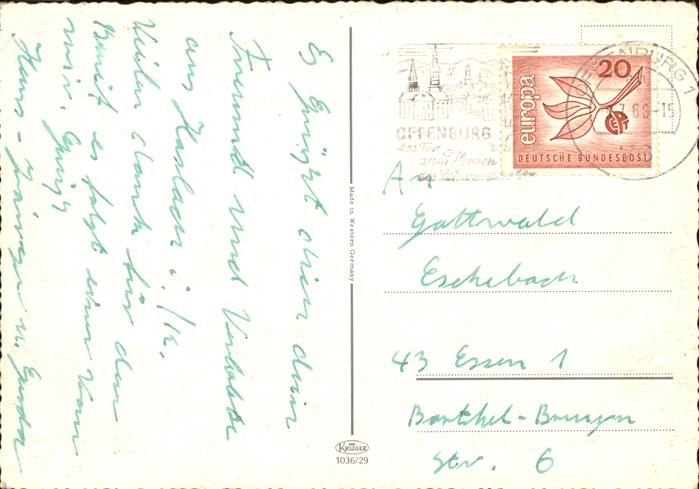 Es Grüßt dich dein
Freund und Verbobte
aus Haslach i./K.
Vielen dank für den
Brief es folgt einer von
mir. Gruß
Hans-
u. Gerda
Made in Western Germany
KRÜGER
1036/29
OFFENBURG
das Tor
zum Herzen
des Schwarzwaldes
europa
20
DEUTSCHE BUNDESPOST
OFFENBURG 1
66-15
An
Gottwald
Eschebach
43 Essen 1
Barthel-Bruyn
Str. 6